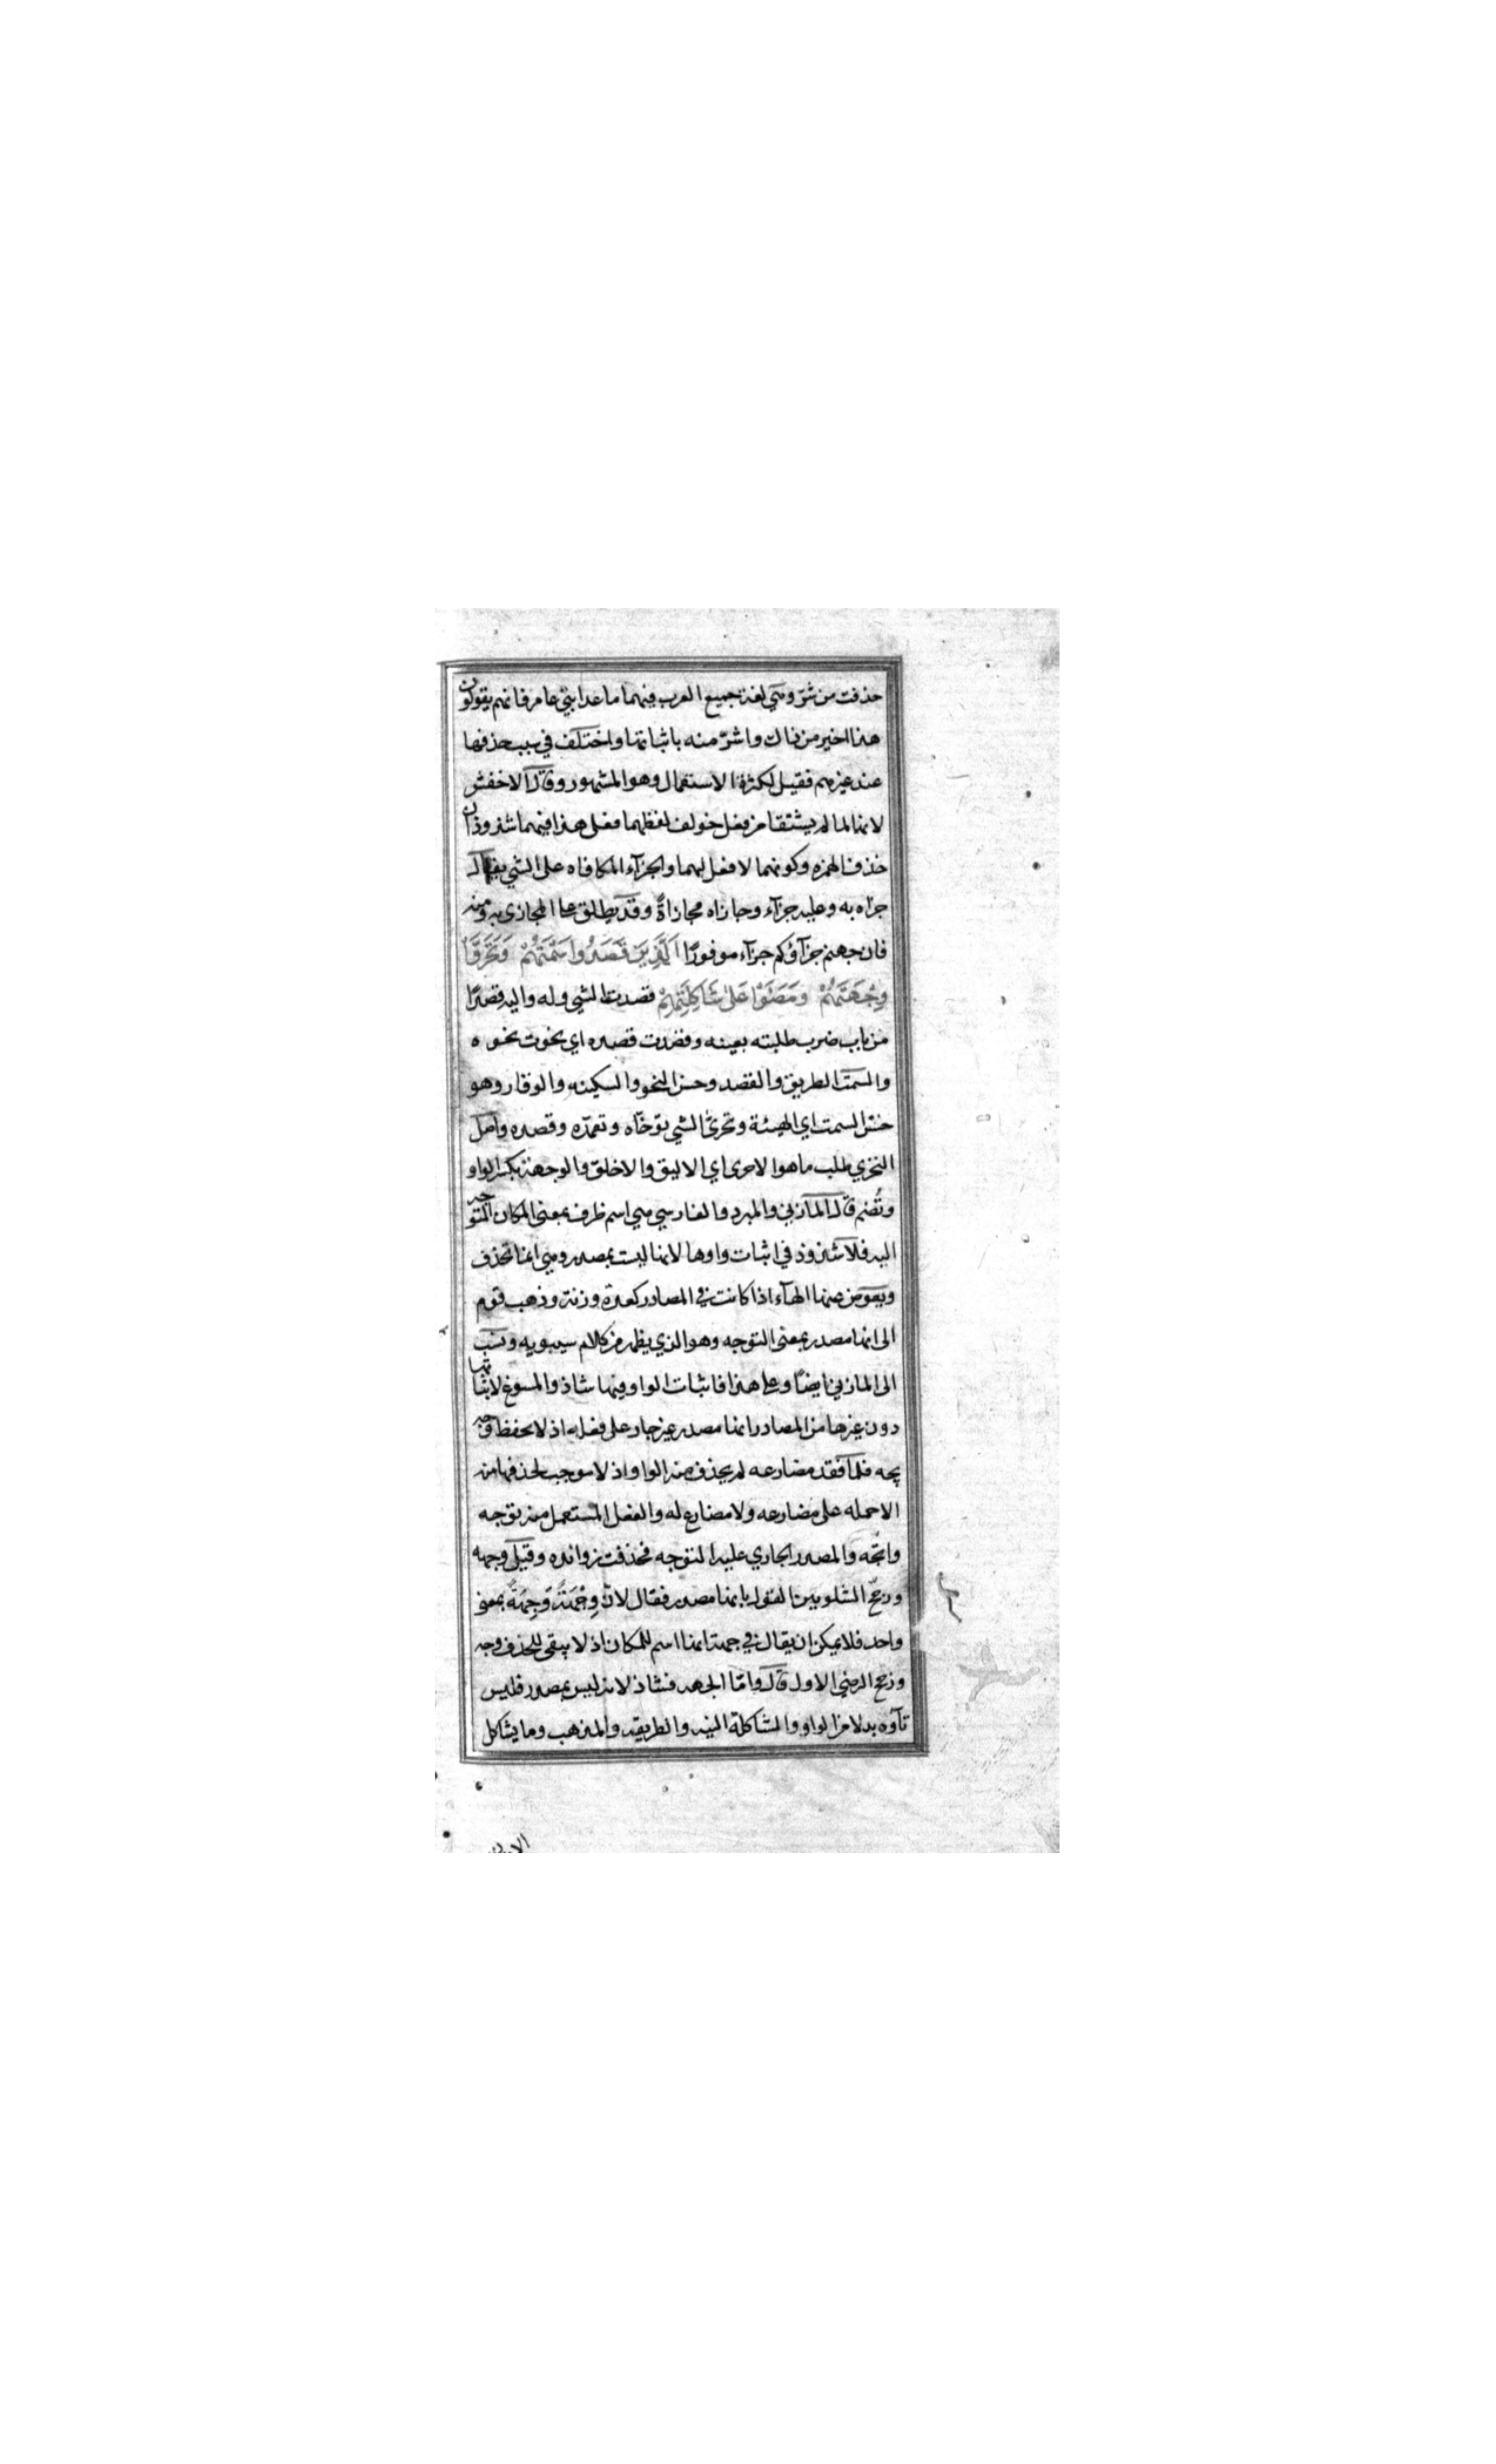 حذفت من شرّ وهي لغة جميع العرب فيهما ما عدا بني عامر فانهم يقولون
هذا اخير من ذاك واشرّ منه باثباتها واختلف في سبب حذفها
عند غيرهم فقيل لكثرة الاستعمال وهو المشهور وقال الاخفش
لانهما لما لم يشتقا من فعل خولف لفظهما فعلى هذا فيهما شذوذان
حذف الهمزه وكونهما لا فعل لهما والجزآء المكافاه على الشي يقال
جزاه به وعليه جزآء وجازاه مجازاةً وقد يطلق على المجازى به ومنه
فان جهنم جزآؤكم جزآء موفورًا الَّذِينَ قَصَدُوا سَمْتَهُمْ وَتَحَرَّوْا
وِجْهَتَهُمْ وَمَضَوْا عَلىٰ شَاكِلَتِهِمْ قصدت الشي وله واليه قصدًا
من باب ضرب طلبته بعينه وقصدت قصده اي نحوت نحوه
والسمت الطريق والقصد وحسن النحو والسكينه والوقار وهو
حسن السمت اي الهيئة وتحرىّ الشي توخّاه وتعمدّه وقصده واصل
التحري طلب ما هو الاحرى اي الاليق والاخلق والوجهة بكسر الواو
وتُضم قال المآزني والمبرد والفارسي هي اسم ظرف بمعنى المكان المتوجه
اليه فلا شذوذ في اثبات واوها لانها ليست بمصدر وهي انما تحذف
ويعوض منها الهآء اذا كانت في المصادر كعدة وزنة وذهب قوم
الى انها مصدر بمعنى التوجه وهو الذي يظهر من كلام سيبويه ونسب
الى المازني ايضًا وعلى هذا فاثبات الواو فيها شاذ والمسوغ لاثباتها
دون غيرها من المصادر انها مصدر غير جار على فعله اذ لا يحفظ وجه
يجه فلما فقد مضارعه لم يحذف منه الواو اذ لا موجب لحذفها منه
الا حمله على مضارعه ولا مضارع له والفعل المستعمل منه توجه
واتجه والمصدر الجاري عليه التوجه فحذفت زوائده وقيل وجهه
ورجح الشلوبين القول بانها مصدر فقال لان وِجْهَةً وَجِهَةً بمعنى
واحد فلا يمكن ان يقال في جهة انها اسم للمكان اذ لا يبقى للحذف وجه
ورجح الرضي الاول قال واما الجهه فشاذ لانه ليس بمصدر فليس
تآوه بدلا من الواو والشاكلة النيه والطريقه والمذهب وما يشاكل